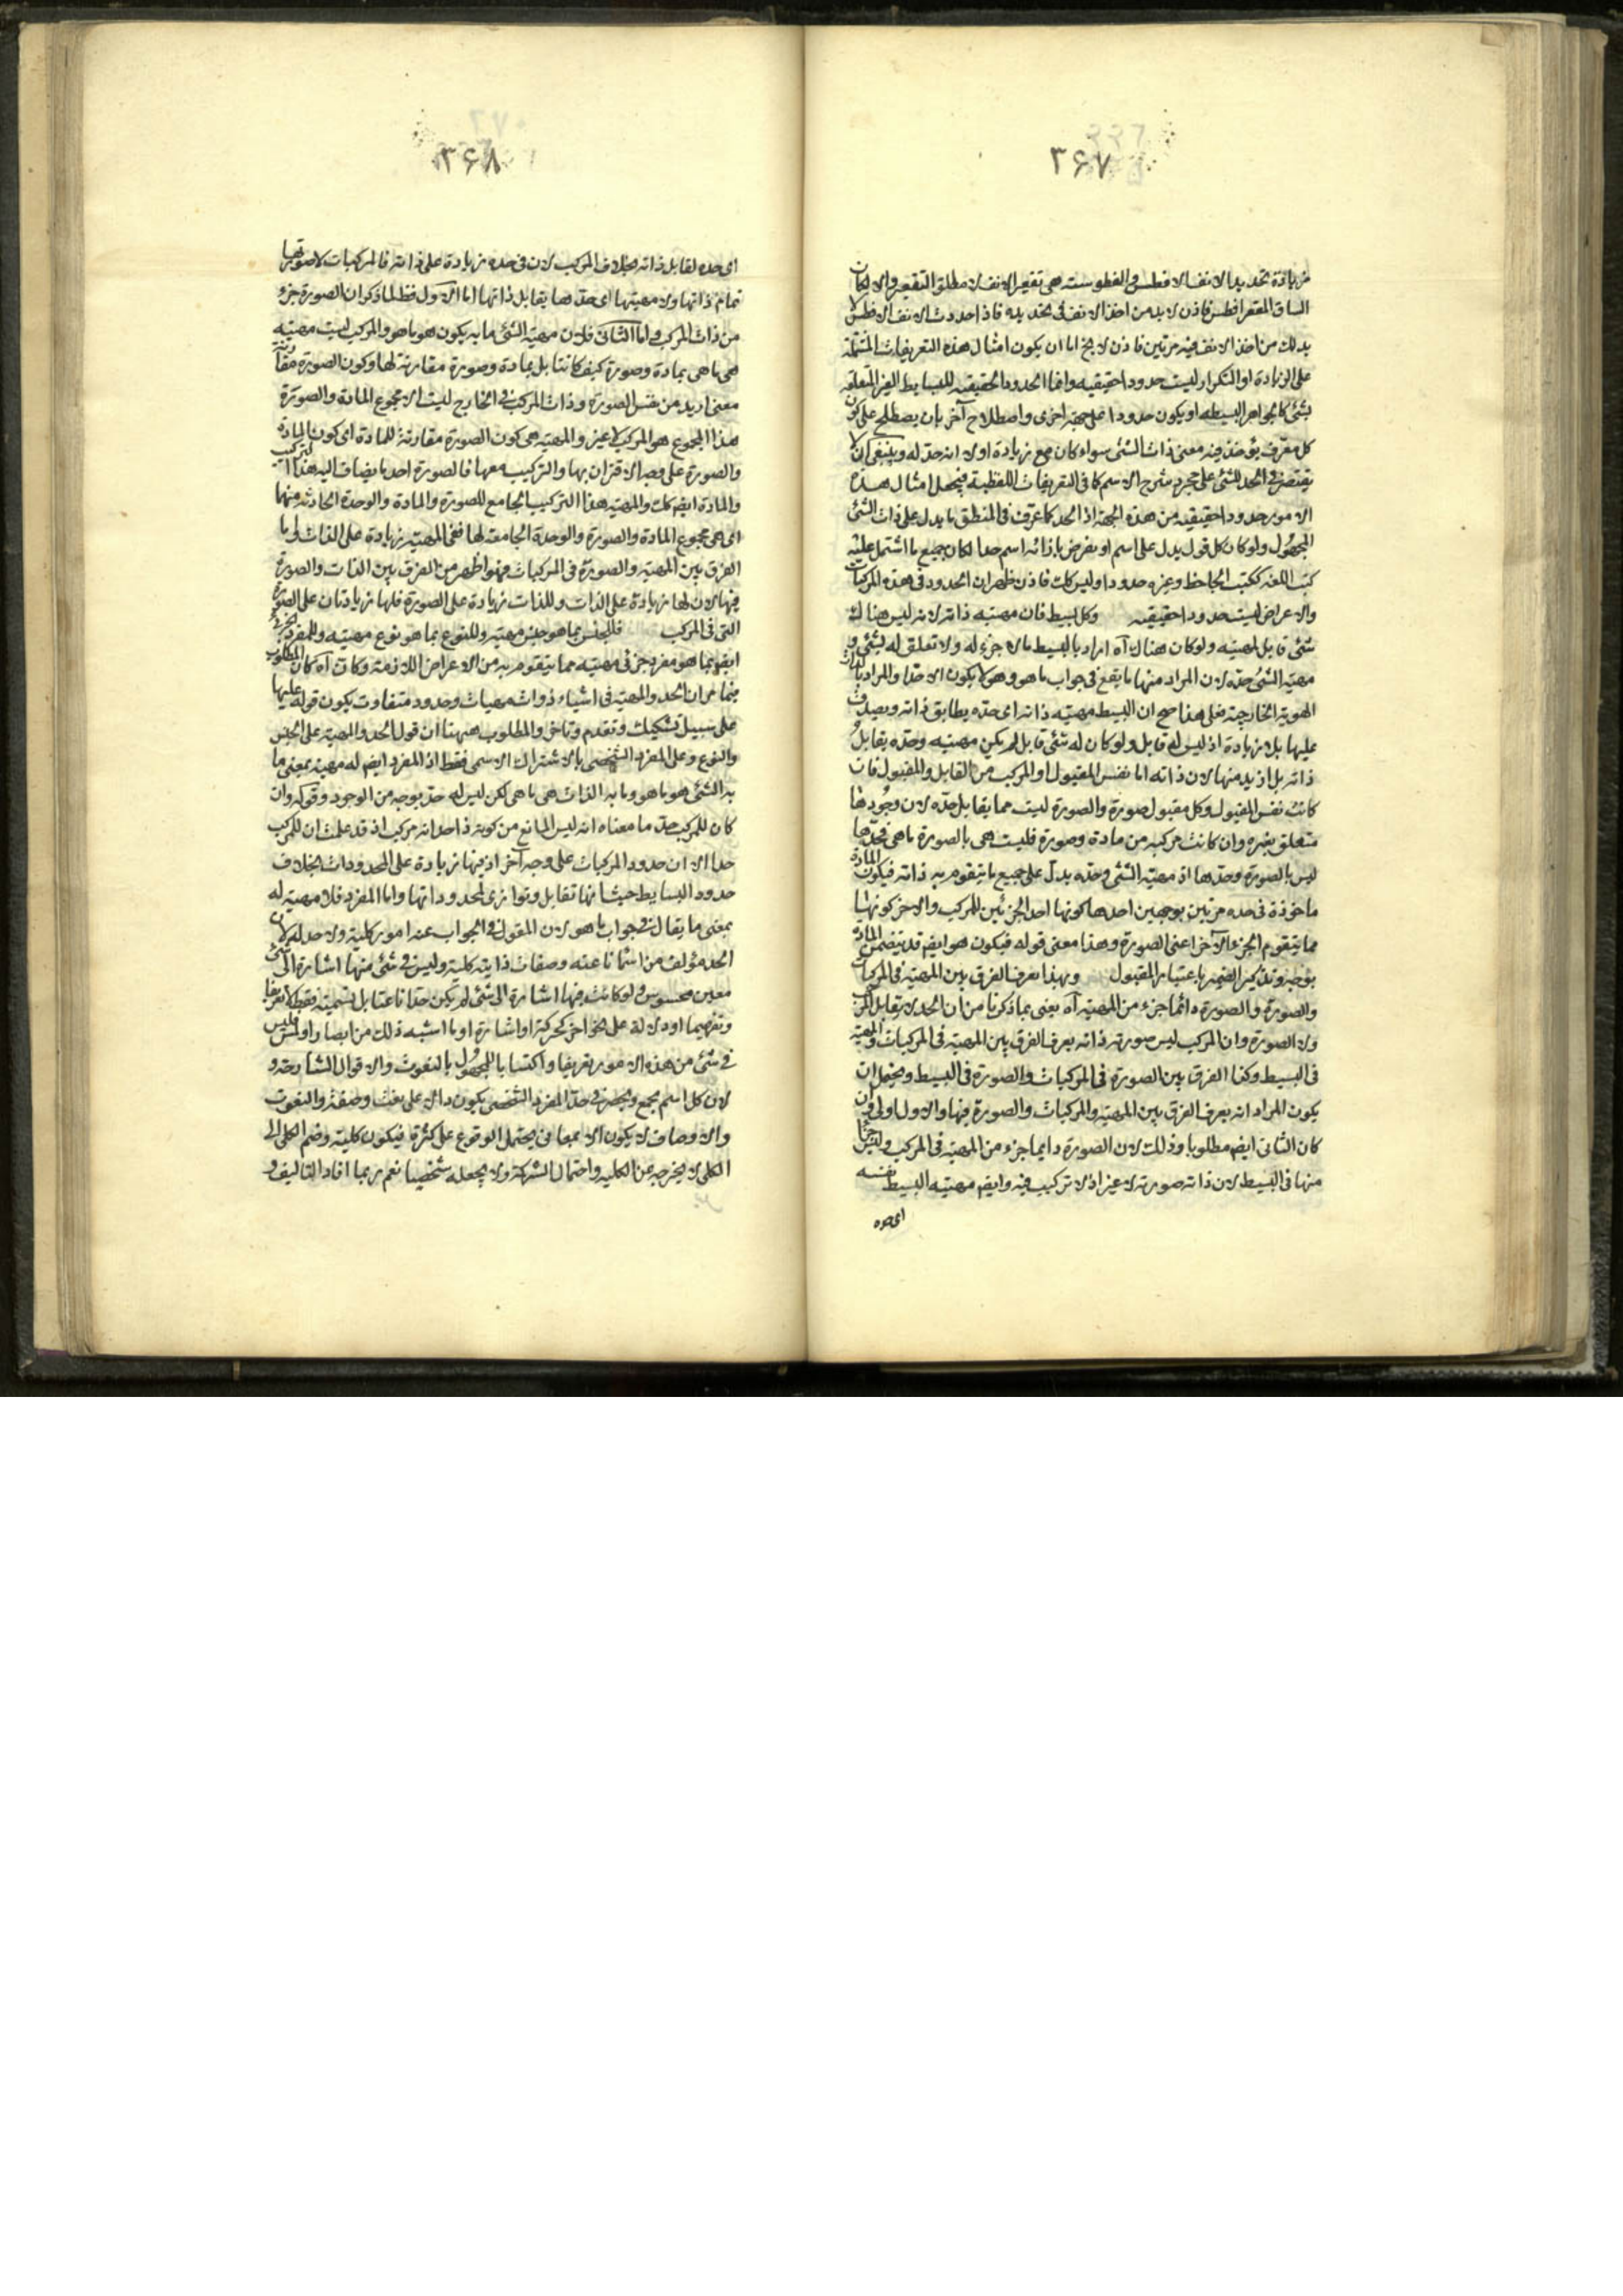 ۳۶۷
زيادة تحديد الانف الافطس والفطوسة هى تقعير الانف لا مطلق التقعير والا لكان
الساق المقعر افطس فاذن لابد من اخذ الانف فى تحديده فاذا حددت الانف الافطس لا
بد لك من اخذ الانف فيه مرتين فاذن لا يخ اما ان يكون امثال هذه التعريفات المشتملة
على الزيادة او التكرار ليست حدودا حقيقيه وانما الحدود الحقيقيه للبسايط الغير المتعلقه
بشئ كالجواهر البسيطه او يكون حدودا على جهة اخرى واصطلاح آخر بان يصطلح على كون
كل معرّف يؤخذ فيه معنى ذات الشئ سواء كان مع زيادة اولا انه حدّ له وينبغى ان لا
يقتصر فى الحد للشئ على مجرد شرح الاسم كما فى التعريفات اللفظية فيجعل امثال هذه
الامور حدودا حقيقيه من هذه الجهة اذ الحد كما عرّفت فى المنطق ما يدل على ذات الشئ
المجهول ولو كان كل قول يدل على اسم او يفرض بازائه اسم حدا لكان جميع ما اشتمل عليه
كتب اللغه ككتب الجاحظ وغيره حدودا وليس كك فاذن ظهر ان الحدود فى هذه المركبات
والاعراض ليست حدودا حقيقيه وكل بسيط فان مهيته ذاته لانه ليس هناك
شئ قابل لمهيته ولو كان هناك آه اراد بالبسيط ما لا جزء له ولا تعلق له بشئ و
مهية الشئ حدّه لان المراد منها ما يقع فى جواب ما هو وهو لا يكون الا حدّا والمراد بالذات
الهوية الخارجية فعلى هذا صح ان البسيط مهيته ذاته اى حدّه يطابق ذاته ويصدق
عليها بلا زيادة اذ ليس له قابل ولو كان له شئ قابل لم يكن مهيته وحدّه يقابل
ذاته بل ازيد منها لان ذاته اما نفس المقبول او المركب من القابل والمقبول فان
كانت نفس المقبول وكل مقبول صورة والصورة ليست مما يقابل حدّه لان وجودها
متعلق بغيره وان كانت مركبه من مادة وصورة فليست هى بالصورة ما هى فحدّها
ليس بالصورة وحدها اذ مهية الشئ وحدّه يدلّ على جميع ما يتقوم به ذاته فيكون المادة
ماخوذة فى حده مرتين بوجهين احدهما كونها احد الجزئين للمركب والاخر كونها
مما يتقوم الجزء الاخر اعنى الصورة وهذا معنى قوله فيكون هو ايضم قد يتضمن المادة
بوجه وتذكير الضمير باعتبار المقبول وبهذا تعرف الفرق بين المهية فى المركبات
والصورة والصورة دائما جزء من المهية آه يعنى بما ذكرنا من ان الحد لا يقابل المركب
ولا الصورة وان المركب ليس صورته ذاته يعرف الفرق بين المهية فى المركبات والمهية
فى البسيط وكذا الفرق بين الصورة فى المركبات والصورة فى البسيط ويحتمل ان
يكون المراد انه يعرف الفرق بين المهية والمركبات والصورة فيها والاول اولى وان
كان الثانى ايضم مطلوبا وذلك لان الصورة دايما جزء من المهية فى المركب وليس جزأ
منها فى البسيط لان ذاته صورته لا غير اذ لا تركيب فيه وايضم مهيته البسيط نفسه
اى حده
۳۶۸
اى حده لقابل ذاته بخلاف المركب لان فى حده زيادة على ذاته فالمركبات لا صورتها
تمام ذاتها ولا مهيتها اى حدّها يقابل ذاتها اما الاول فظ لما ذكر ان الصورة جزء
من ذات المركب واما الثانى فلان مهية الشئ ما به يكون هو ما هو والمركب ليست مهيته
هى ما هى بمادة وصورة كيف كانتا بل بمادة وصورة مقارنة لها وكون الصورة مقارنة
معنى ازيد من نفس الصورة وذات المركب فى الخارج ليست الا مجموع المادة والصورة
هذا المجموع هو المركب لا غير والمهية هى كون الصورة مقارنة للمادة اى كون المادة
والصورة على وجه الاقتران بها والتركيب معها فالصورة احد ما يضاف اليه هذا التركيب
والمادة ايضم كك والمهية هذا التركيب الجامع للصورة والمادة والوحدة الحادثة منها
اى هى مجموع المادة والصورة والوحدة الجامعة لها ففى المهية زيادة على الذات واما
الفرق بين المهية والصورة فى المركبات فهو اظهر من الفرق بين الذات والصورة
فيها لان لها زيادة على الذات وللذات زيادة على الصورة فلها زيادتان على الصورة
التى فى المركب فللجنس بما هو جنس مهية وللنوع بما هو نوع مهيته وللمفرد الجزئى
ايضم بما هو مفرد جزئى مهيته مما يتقوم به من الاعراض اللازمة وكان آه كان المطلوب
فيما مر ان الحد والمهية فى اشياء ذوات مهيات وحدود متفاوت يكون قوله عليها
على سبيل تشكيك وتقدم وتاخر والمطلوب ههنا ان قول الحد والمهية على الجنس
والنوع وعلى المفرد الشخصى بالاشتراك الاسمى فقط اذ المفرد ايضم له مهية بمعنى ما
به الشئ هو ما هو وما به الذات هى ما هى لكن ليس له حدّ بوجه من الوجود وقوله وان
كان للمركب حدّ ما معناه انه ليس المانع من كونه ذا حد انه مركب اذ قد علمت ان للمركب
حدا الا ان حدود المركبات على وجه آخر اذ فيها زيادة على المحدودات بخلاف
حدود البسايط حيث انها تقابل وتوازى لمحدوداتها واما المفرد فلا مهية له
بمعنى ما يقال فى جواب ما هو لان المقول فى الجواب عنه امور كلية ولا حد له لان
الحد مؤلف من اسماء ناعته وصفات ذاتية كلية وليس فى شئ منها اشارة الى شئ
معين محسوس ولو كانت فيها اشارة الى شئ لم تكن حدّا ناعتا بل تسمية فقط لا تعريفا
وتفهيما او دلالة على نحو اخر كحركة او اشارة او ما اشبه ذلك من ابصار او لمس وليس
فى شئ من هذه الامور تعريفا واكتسابا للمجهول بالنعوت والاقوال الشارحة و
لان كل اسم يجمع ويحضر فى حدّ المفرد الشخصى يكون دالا على نعت وصفة والنعوت
والاوصاف لا يكون الا بمعانى يحتمل الوقوع على كثرة فيكون كلية وضم الكلى الى
الكلى لا يخرجه عن الكليه واحتمال الشركة ولا يجعله شخصيا نعم ربما افاد التاليف و